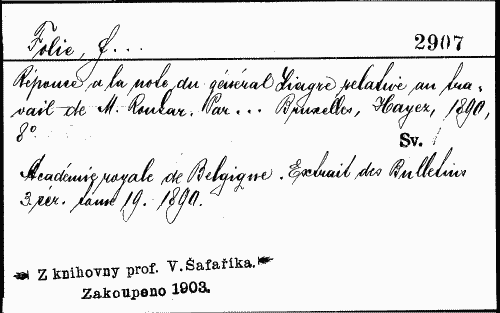 Folie, F...
2907
Réponce a la note du général Liagre relative au tra-
vail de M. Ronkar. Par... Bruxelles, Hayez, 1890,
8°
Sv. 1
Académie royale de Belgique. Extrait des Bulletins
3. sér. tome 19. 1890.
Z knihovny prof. V. Šafaříka.
Zakoupeno 1903.